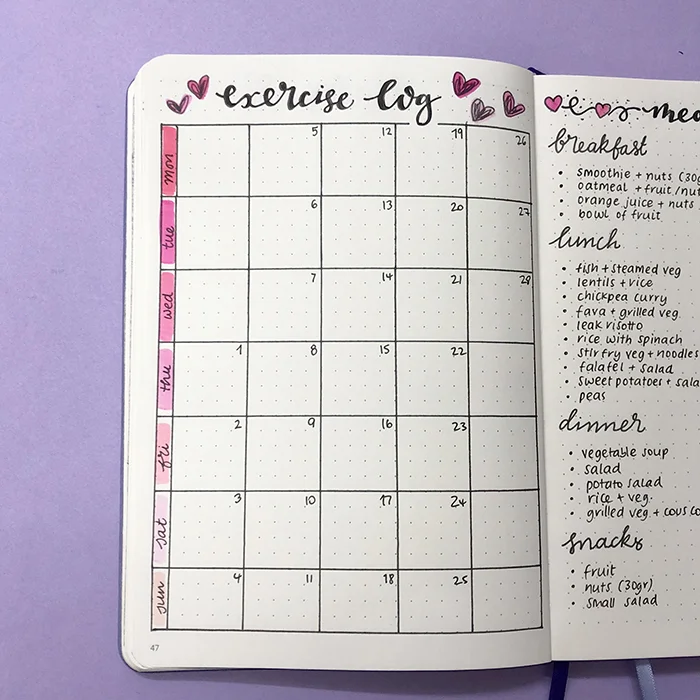 exercise log
mon 5 12 19 26
tue 6 13 20 27
wed 7 14 21 28
thu 1 8 15 22
fri 2 9 16 23
sat 3 10 17 24
sun 4 11 18 25
47
breakfast
• smoothie + nuts (30g
• oatmeal + fruit/nut
• orange juice + nuts
• bowl of fruit
lunch
• fish + steamed veg
• lentils + rice
• chickpea curry
• fava + grilled veg
• leak risotto
• rice with spinach
• stir fry veg + noodles
• falafel + salad
• sweet potatoes + sala
• peas
dinner
• vegetable soup
• salad
• potato salad
• rice + veg.
• grilled veg + cous co
snacks
• fruit
• nuts (30gr)
• small salad